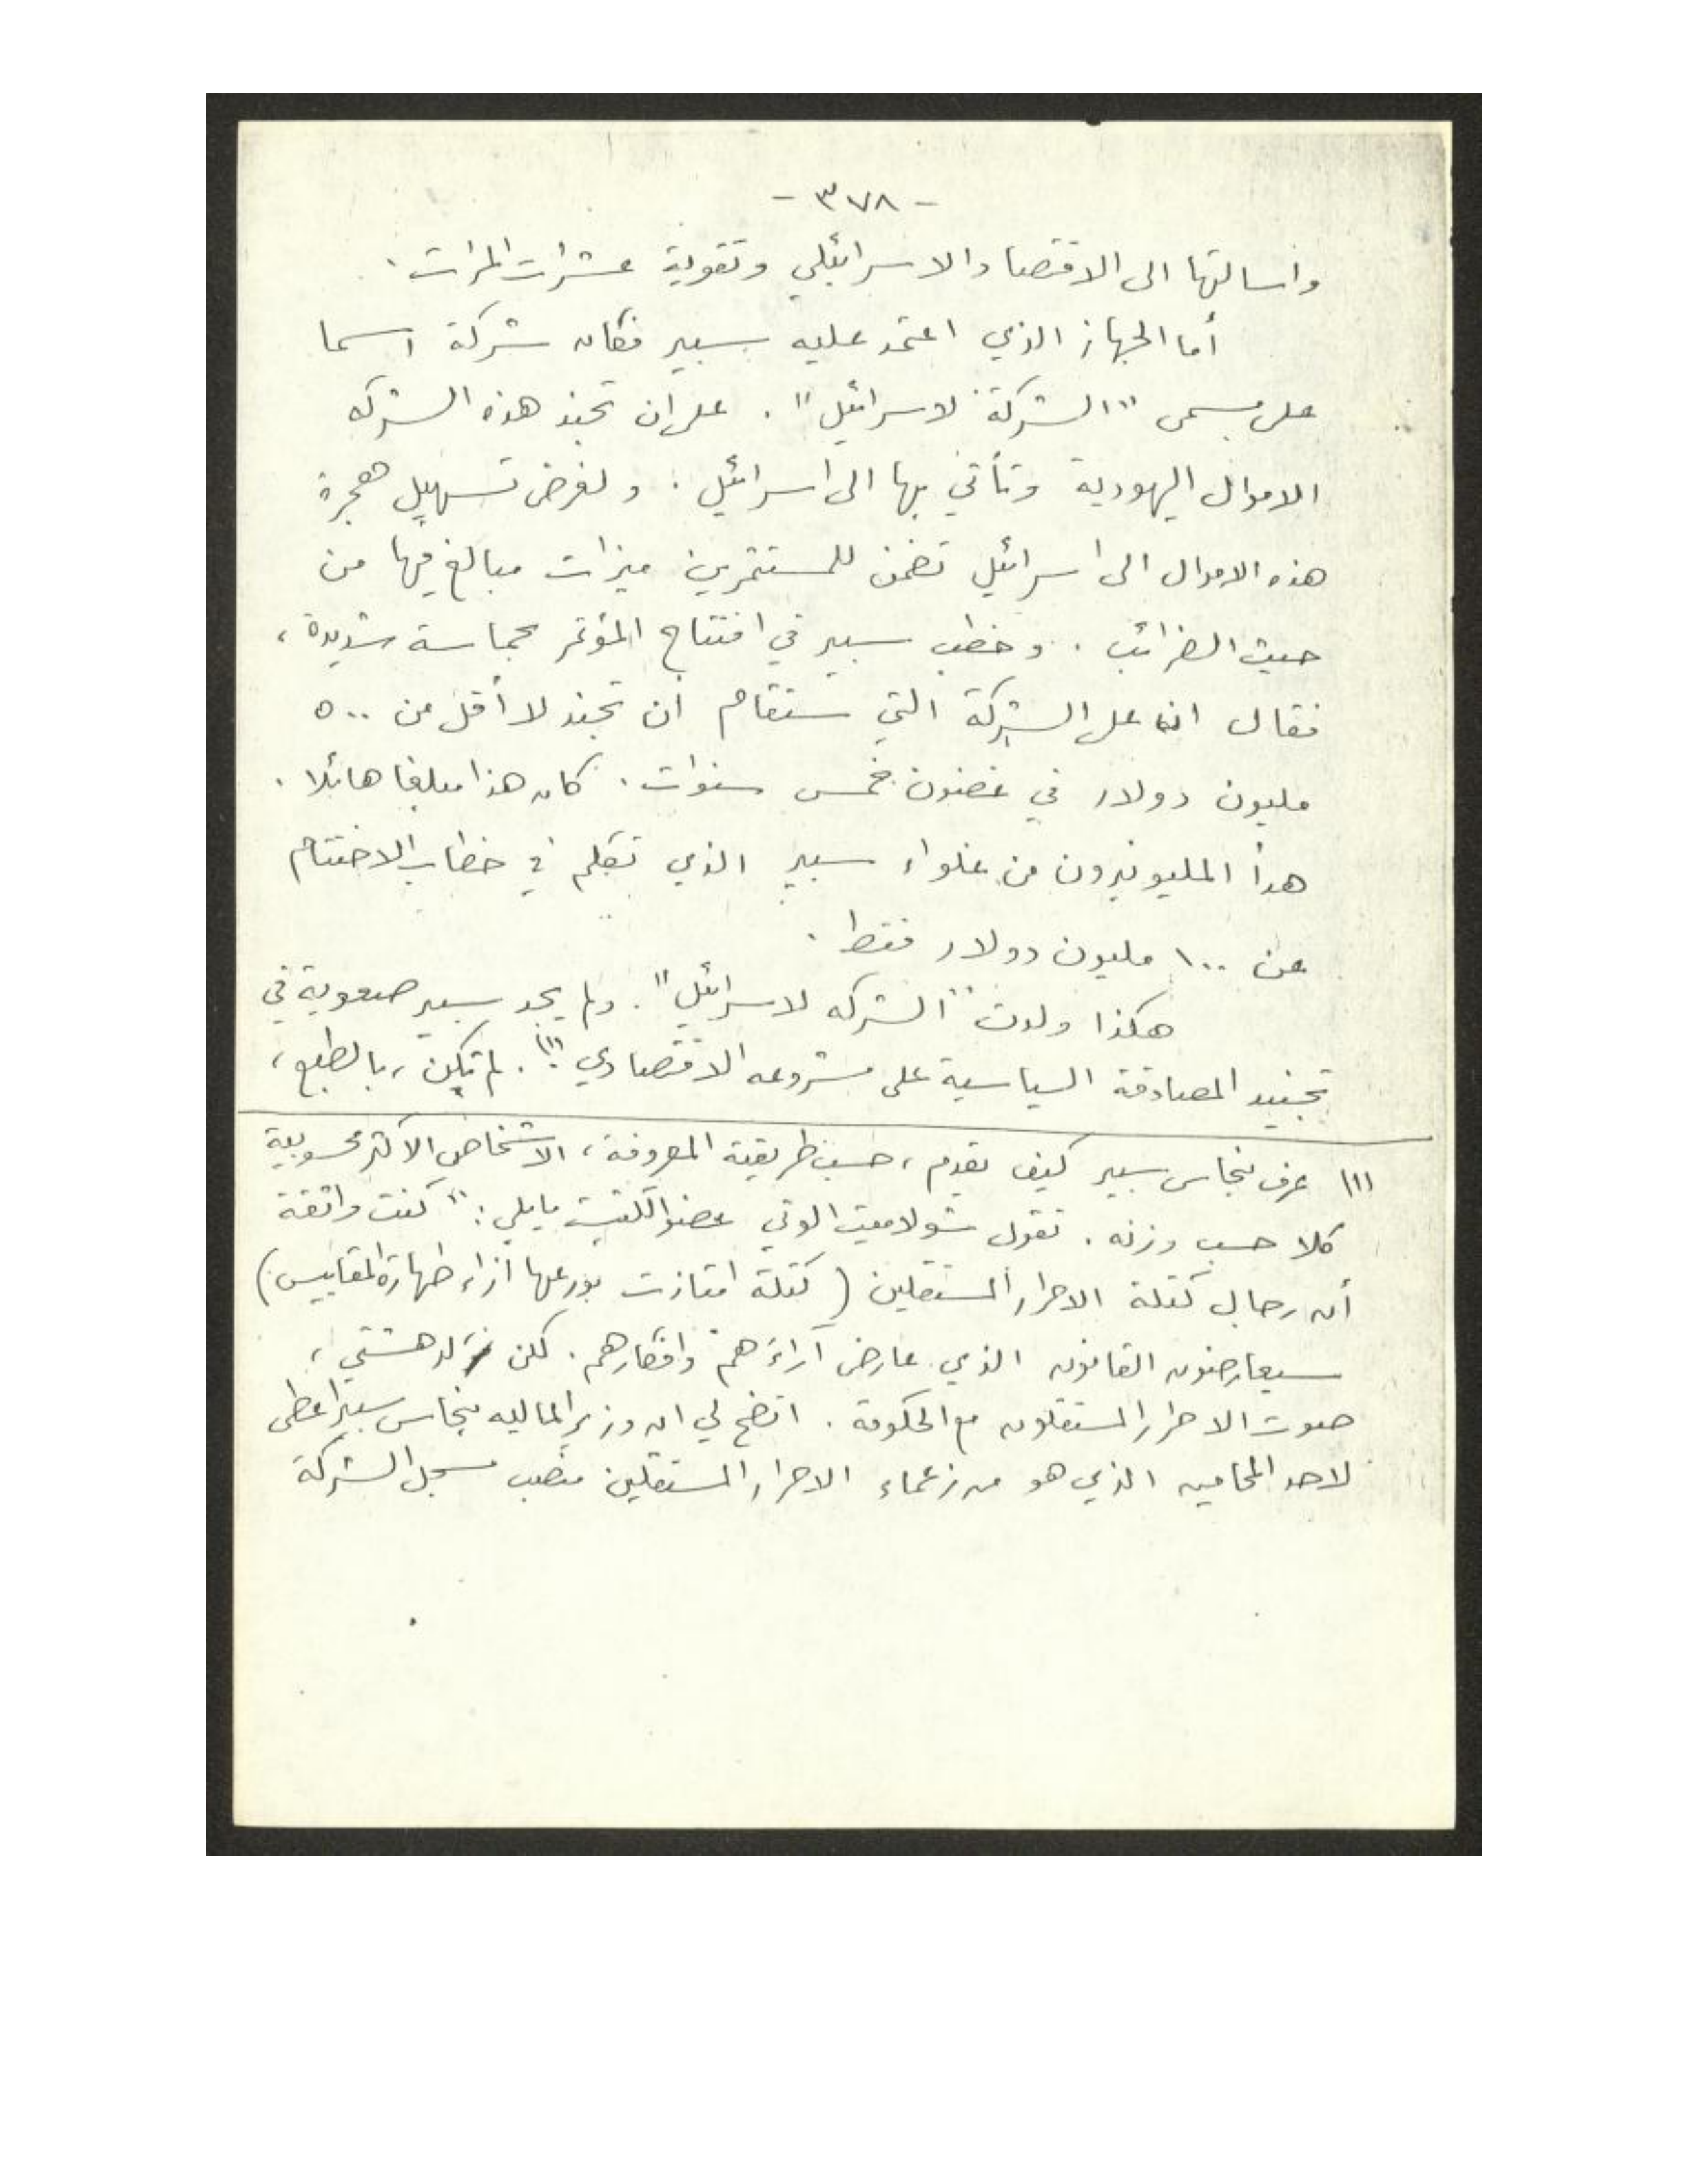 - ٣٧٨ -
واسالتها الى الاقتصاد والاسرائيلي وتقوية عشرات المرات .
أما الجهاز الذي اعتمد عليه سبير فكان شركة اسما
على مسمى "الشركة لاسرائيل" . على ان تجند هذه الشركه
الاموال اليهودية وتأتي بها الى اسرائيل . ولغرض تسهيل هجرة
هذه الاموال الى اسرائيل تضمن للمستثمرين ميزات مبالغ فيها من
حيث الضرائب . وخطب سبير في افتتاح المؤتمر بحماسة شديدة ،
فقال ان على الشركة التي ستقام ان تجند لا أقل من ٥٠٠
مليون دولار في غضون خمس سنوات . كان هذا مبلغا هائلا .
هدأ المليونيرون من غلواء سبير الذي تكلم في خطاب الاختتام
عن ١٠٠ مليون دولار فقط .
هكذا ولدت "الشركه لاسرائيل" . ولم يجد سبير صعوبة في
تجنيد المصادقة السياسية على مشروعه الاقتصادي (١) . لم تكن ، بالطبع ،
(١) عرف بنحاس سبير كيف يقدم ، حسب طريقته المعروفة ، الاشخاص الاكثر محسوبية
كلا حسب وزنه . تقول شولاميت الوني عضو الكنيست مايلي : " كنت واثقة
أن رجال كتلة الاحرار المستقلين ( كتلة امتازت بورعها ازاء طهارة المقاييس )
سيعارضون القانون الذي عارض آراءهم وافكارهم . لكن لدهشتي ،
صوت الاحرار المستقلون مع الحكومة . اتضح لي ان وزير الماليه بنحاس سبير اعطى
لاحد المحامين الذي هو من زعماء الاحرار المستقلين منصب مسجل الشركة